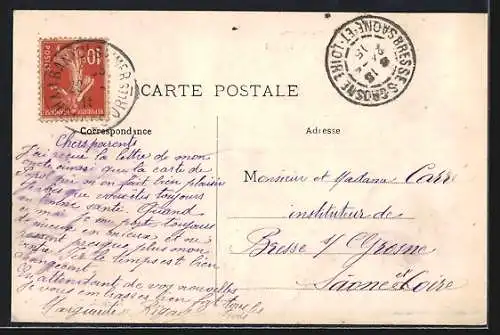 10
POSTES
BRESSE-S-GROSNE
SAONE-ET-LOIRE
CARTE POSTALE
Correspondance
Adresse
Chers parents
J'ai reçu la lettre de mon
ainsi que la carte de
qui m'ont fait bien plaisir
que vous êtes toujours
en bonne santé. Quand
à moi je me porte toujours
de mieux en mieux et ne
presque plus mon
Ici le temps est bien
changeant
En attendant de vos nouvelles
Je vous embrasse bien fort tous les
Marguerite
Monsieur et Madame Carré
instituteur de
Bresse s/ Grosne
Saône et Loire